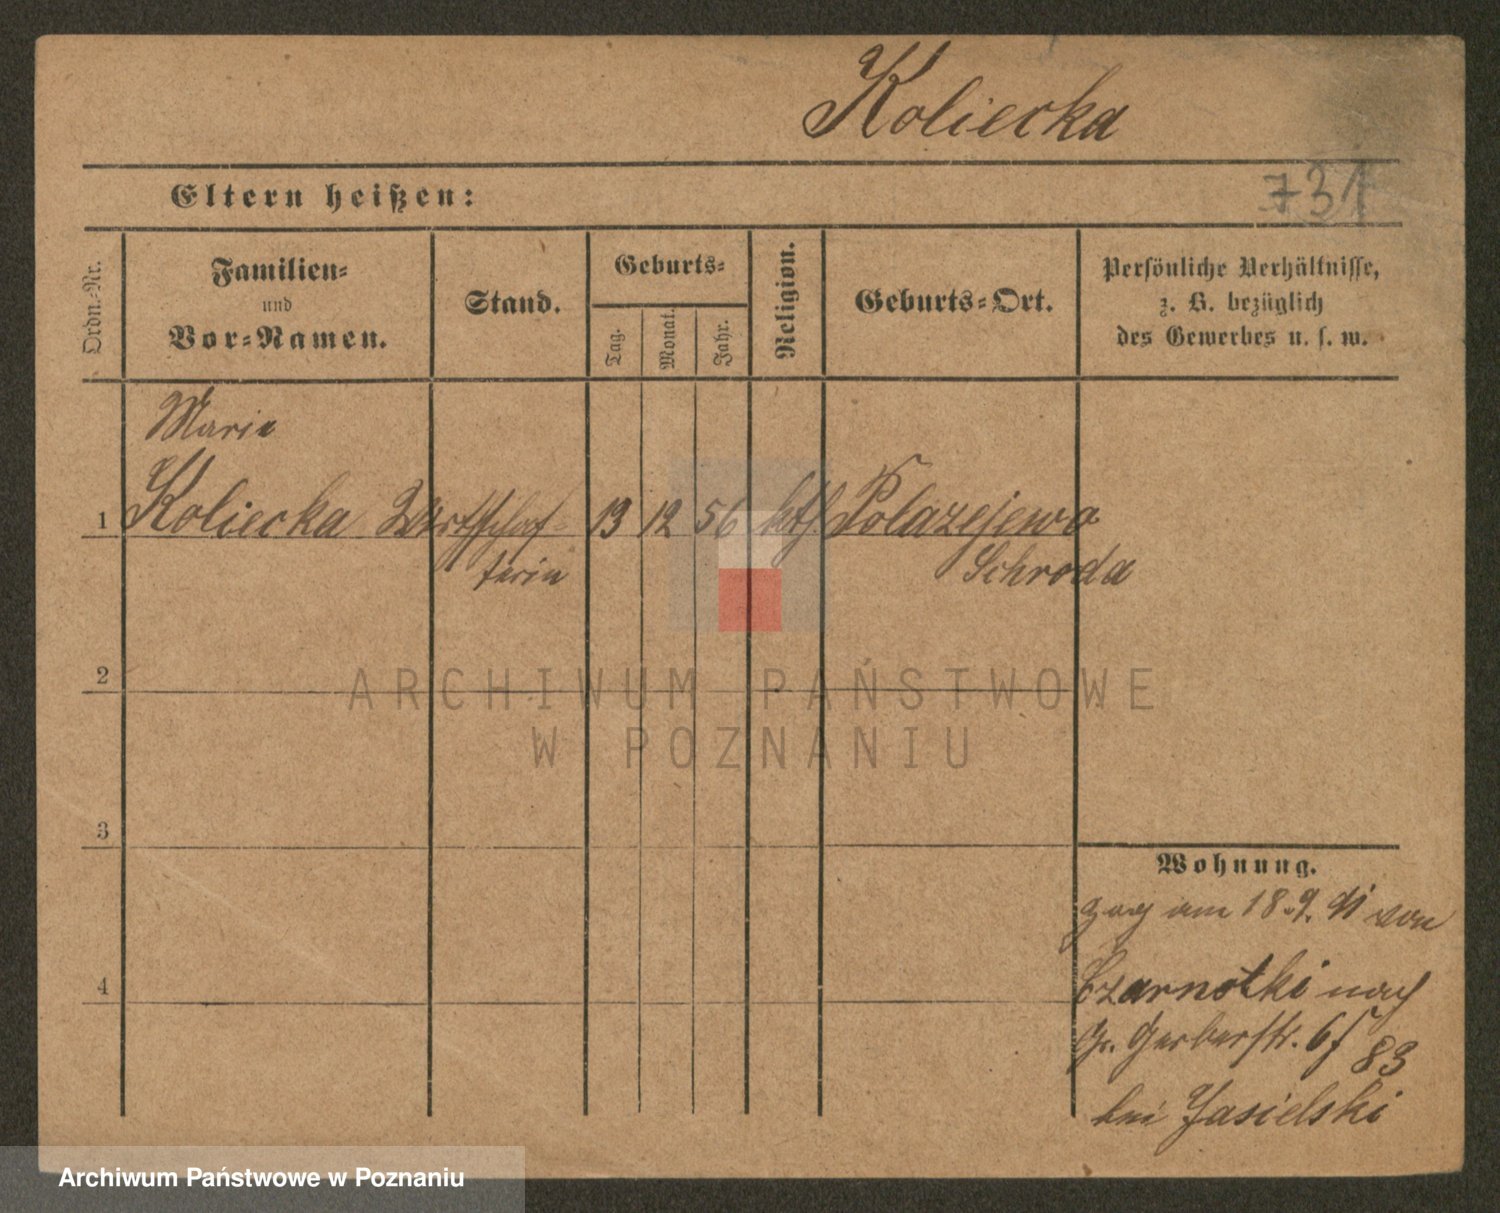 Koliecka
Eltern heißen:
731
Ordn.-Nr.
Familien-
und
Vor-Namen.
Stand.
Geburts-
Tag.
Monat.
Jahr.
Religion.
Geburts-Ort.
Persönliche Verhältnisse,
z. B. bezüglich
des Gewerbes u. s. w.
Marie
1 Koliecka Wirthschaf- 13 12 56 kth. Polazejewo
terin Schroda
2
ARCHIWUM PAŃSTWOWE
W POZNANIU
3
Wohnung.
zog am 18.9. 91 von
Czarnotki nach
4
Gr. Gerberstr. 6
83
bei Jasielski
Archiwum Państwowe w Poznaniu